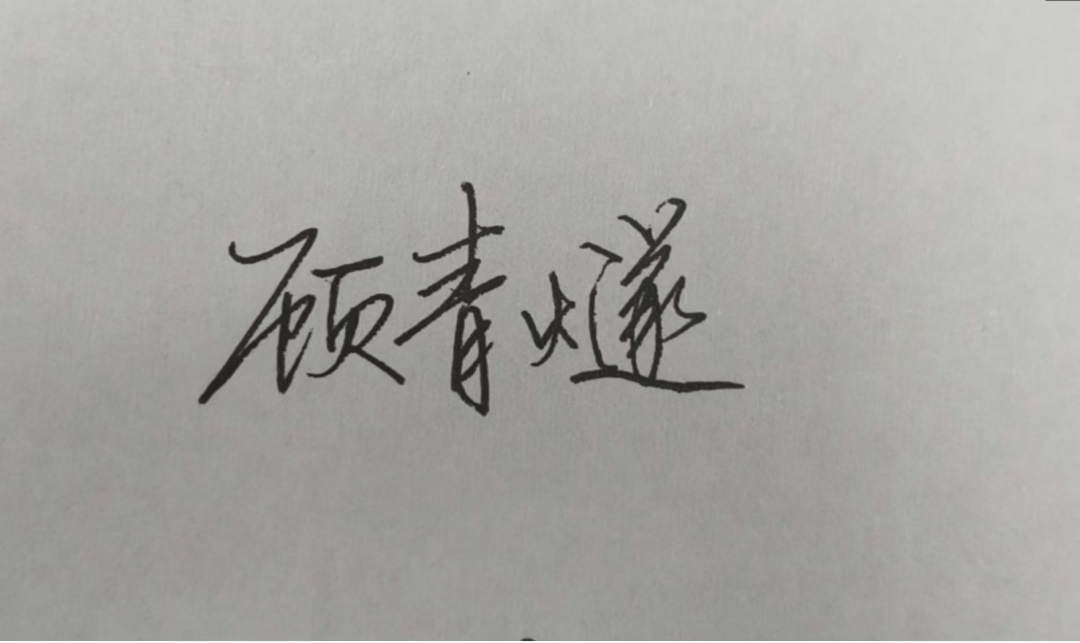 顾青燧